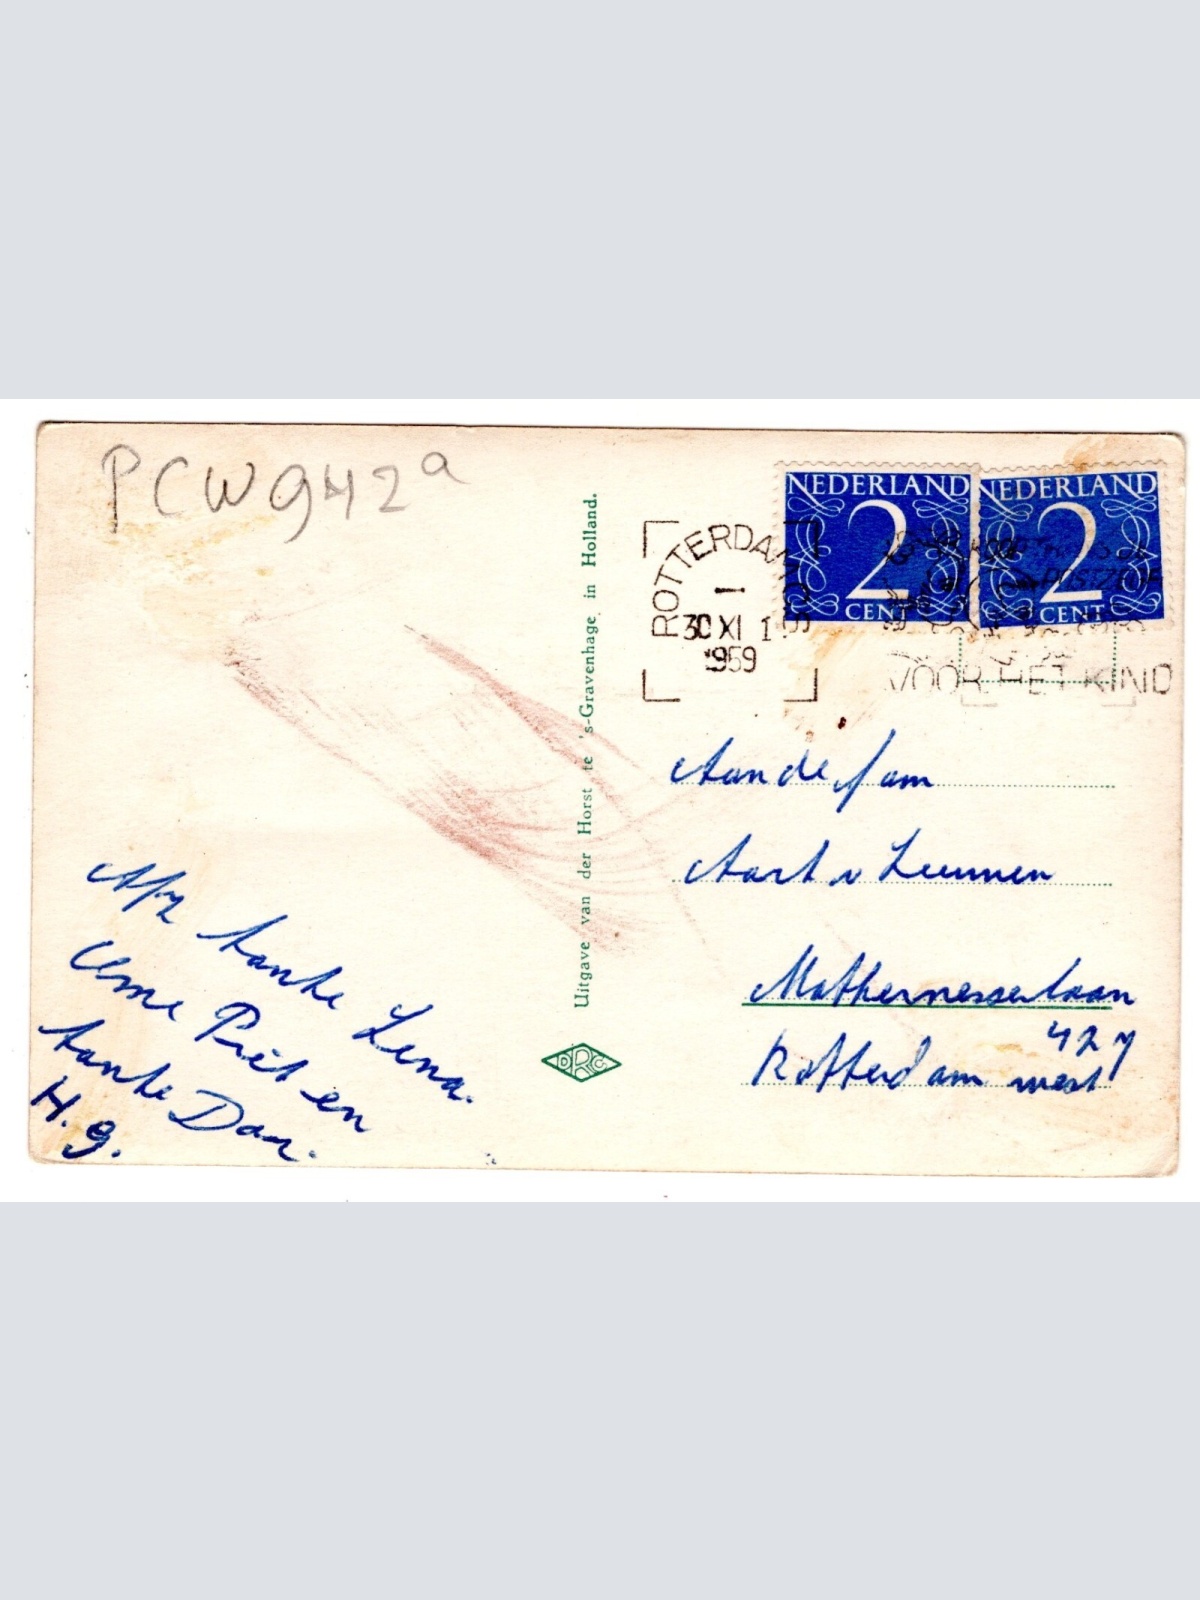 PCW942a
NEDERLAND
2
CENT
NEDERLAND
2
CENT
ROTTERDAM
30 XI 1
1959
POSTZEGE
VOOR HET KIND
Uitgave van der Horst te 's-Gravenhage in Holland.
DRC
Aan de fam
Aart v Leeuwen
Mathernesserlaan
427
Rotterdam west
Afz tante Lena.
Ome Piet en
tante Dar.
H.g.